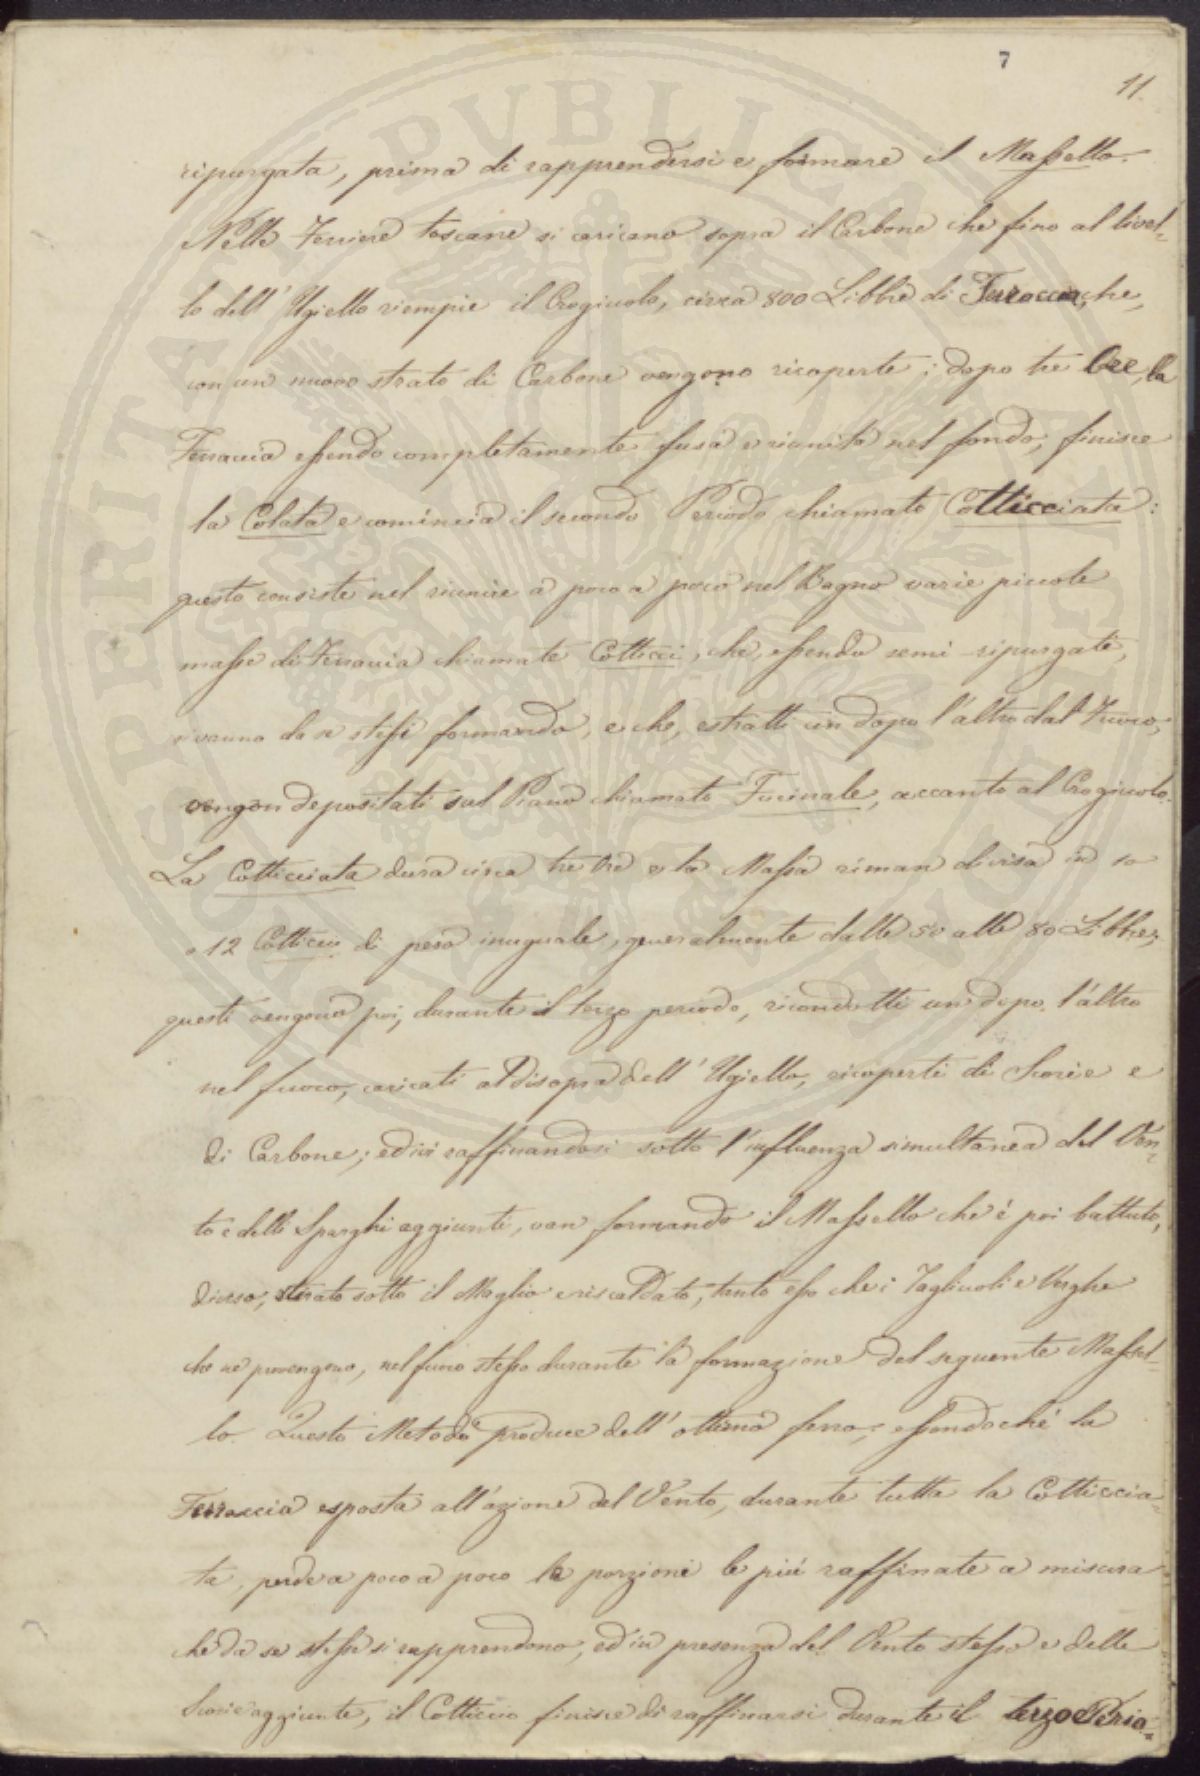 7
11.
ripurgata, prima di rapprendersi e formare il Massello.
Nelle Ferriere toscane si caricano sopra il Carbone che fino al livel=
lo dell' Ugiello riempie il Crogiuolo, circa 800 Libbre di Ferraccia, che,
con un nuovo strato di Carbone vengono ricoperte; dopo tre Ore, la
Ferraccia essendo completamente fusa e riunita nel fondo, finisce
la Colata e comincia il secondo Periodo chiamato Cotticciata:
questo consiste nel riunire a poco a poco nel Bagno varie piccole
masse di Ferraccia chiamate Cotticci, che, essendo semi-ripurgate,
si vanno da se stessi formando, e che, estratti un dopo l'altro dal Fuoco,
vengon depositati sul Piano chiamato Fucinale, accanto al Crogiuolo.
La Cotticciata dura circa tre Ore e la Massa riman divisa in 10
o 12 Cotticci di peso inuguale, generalmente dalle 50 alle 80 Libbre;
questi vengono poi, durante il terzo periodo, ricondotti un dopo l'altro
nel fuoco, caricati al disopra dell' Ugiello, ricoperti di Scorie e
di Carbone; ed ivi raffinandosi sotto l'influenza simultanea del Ven=
to e delle Sparghi aggiunte, van formando il Massello che è poi battuto,
diviso, stirato sotto il Maglio e riscaldato, tanto esso che i Tagliuoli e Verghe
che ne provengono, nel fuoco stesso durante la formazione del seguente Massel=
lo. Questo Metodo produce dell' ottimo ferro, essendoché la
Ferraccia esposta all'azione del Vento, durante tutta la Cotticcia=
ta, perde a poco a poco le porzioni le più raffinate a misura
che da se stesse si rapprendono, ed in presenza del Vento stesso e delle
Scorie aggiunte, il Cotticcio finisce di raffinarsi durante il terzo Perio=
PUBLICAE
PROSPERITATI